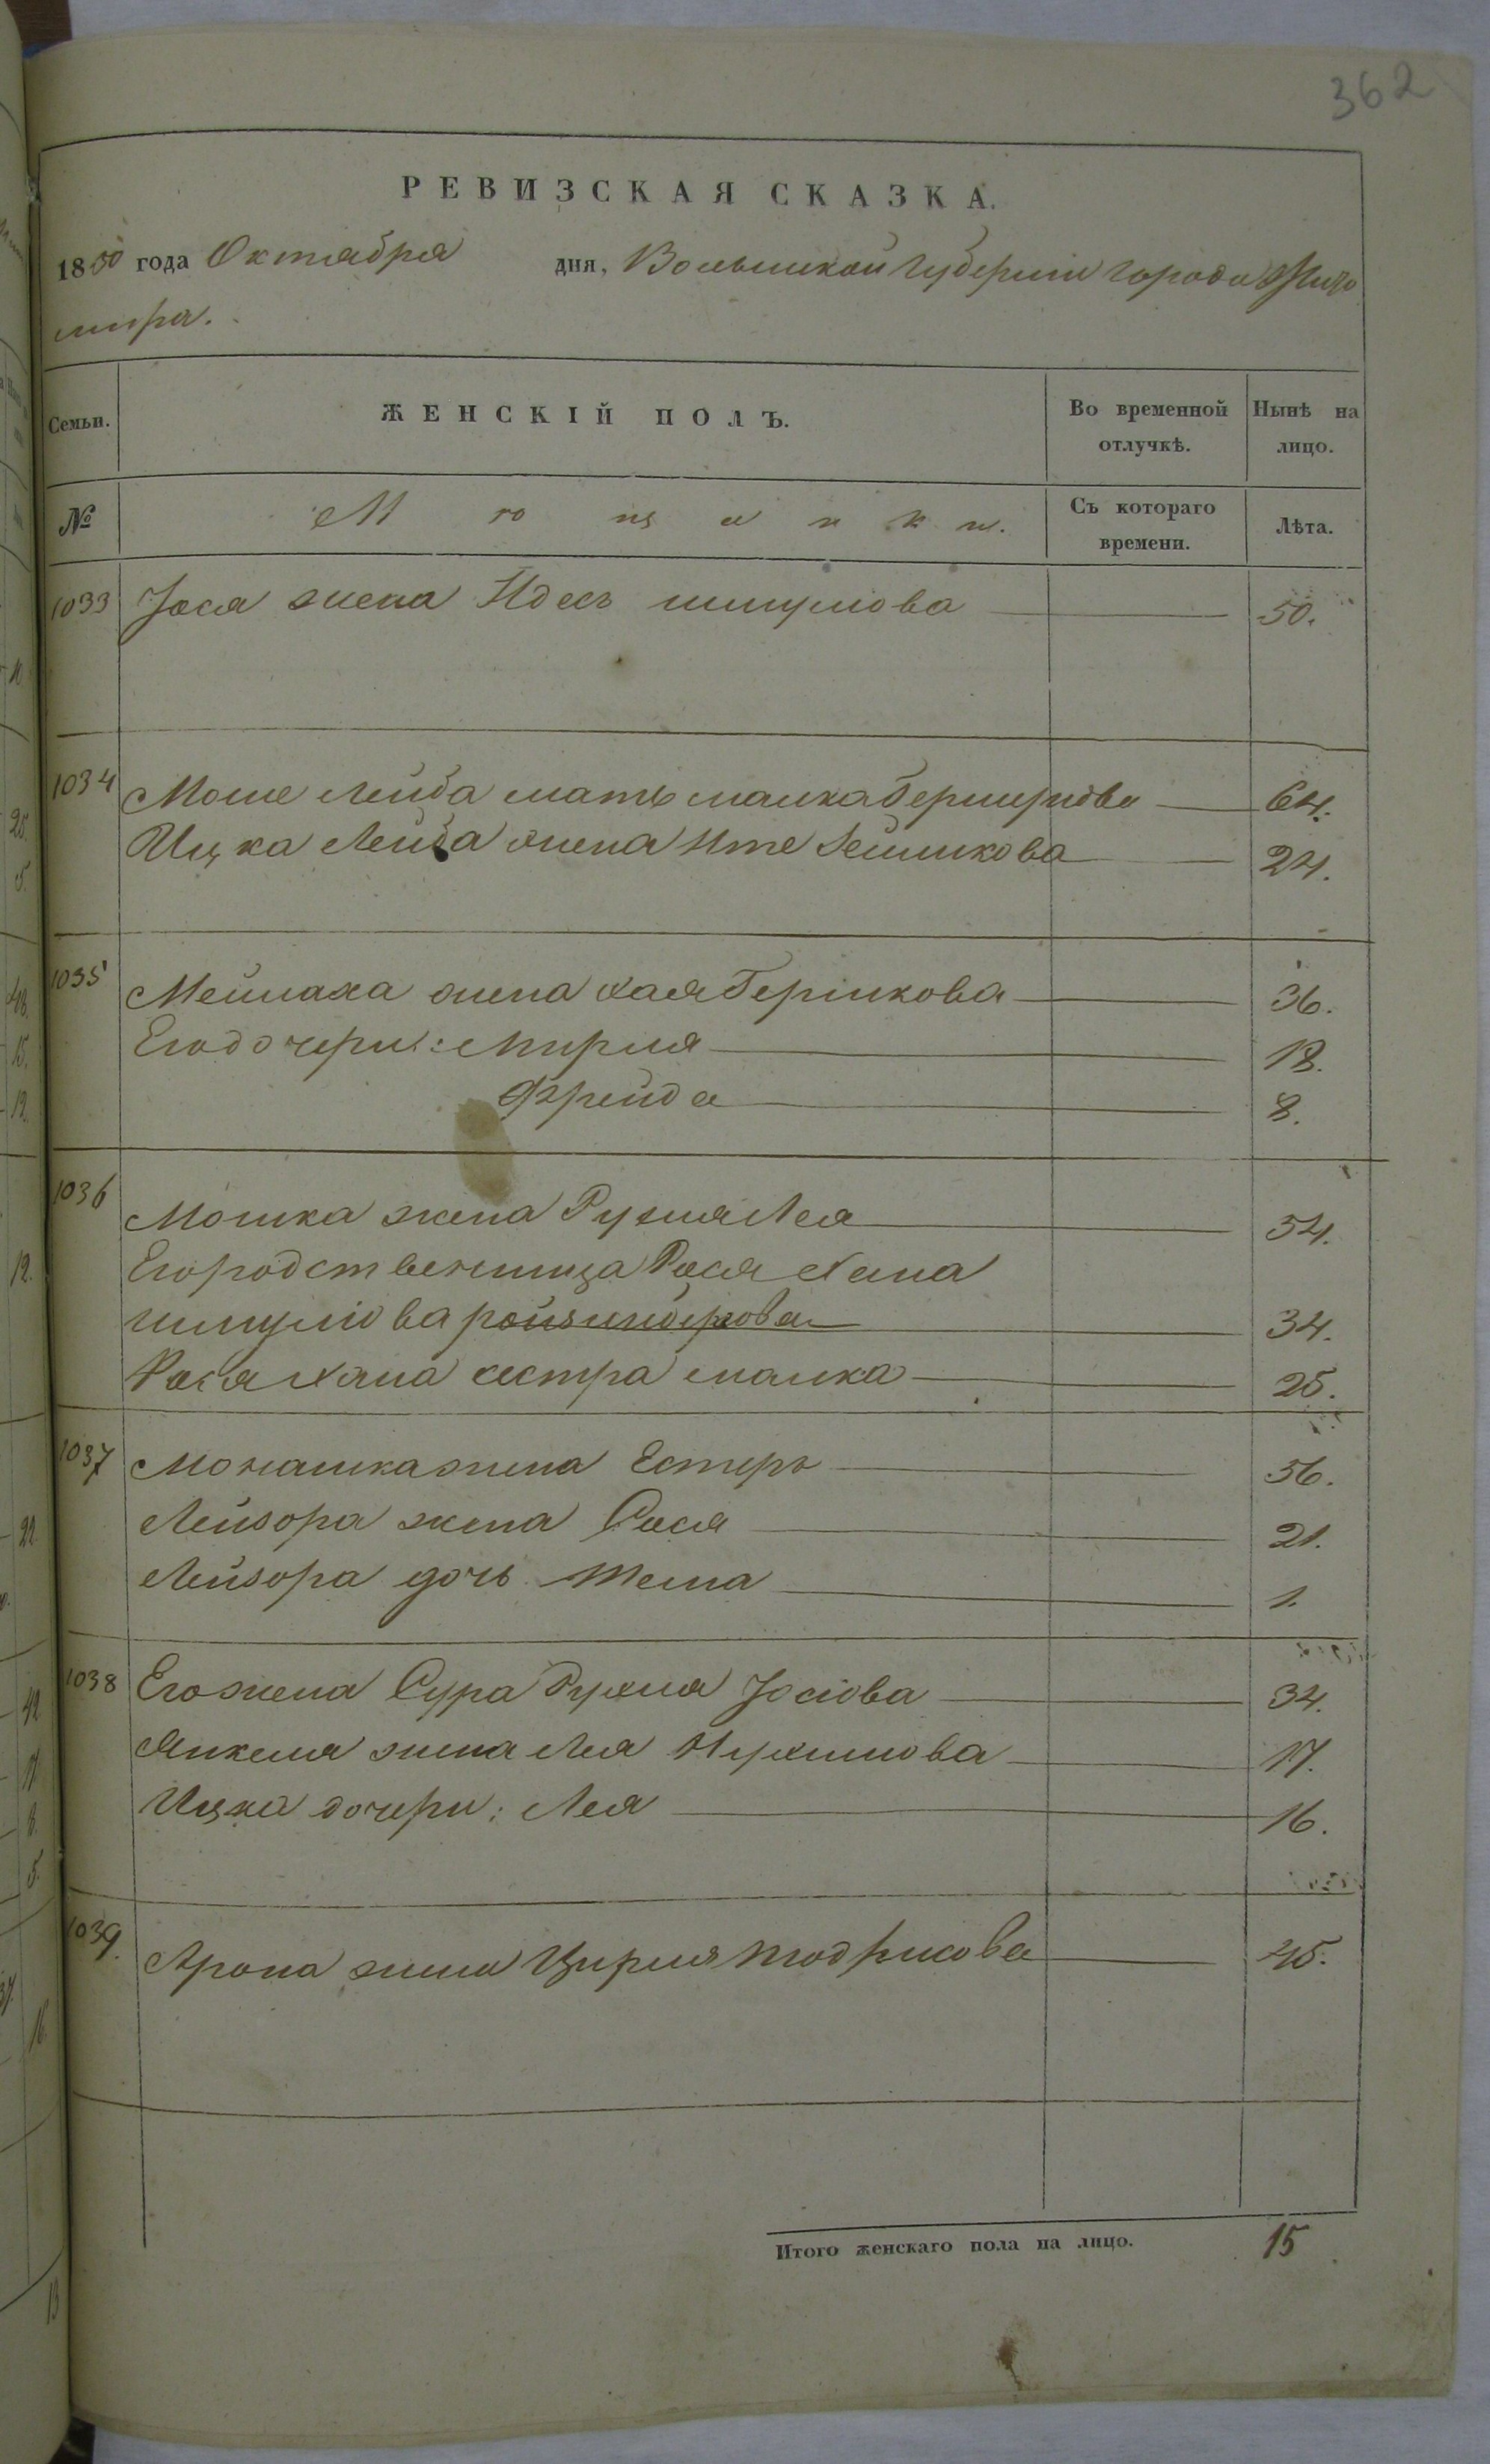 362
РЕВИЗСКАЯ СКАЗКА.
1850 года Октября дня, Волынской Губернии города Жито
мира.
Семьи. ЖЕНСКІЙ ПОЛЪ. Во временной отлучкѣ. Нынѣ на лицо.
№ Мѣщанки. Съ котораго времени. Лѣта.
1033 Іося жена Идесъ Шмулова 50.
1034 Мошe Лейба мать Малка 64.
Ицка Лейба жена Ите 24.
1035 Мейлаха жена Хая Гершкова 36.
Его дочери: Мирля 18.
Фрейда 8.
1036 Мошка жена Рухля Лея 54.
Его родственница Рося Хана
Шмулiова 34.
Рося Хана сестра Малка 25.
1037 Монашка жена Естеръ 56.
Лейзора жена Сося 21.
Лейзора дочь 1.
1038 Его жена Сура Рухля Іосiова 34.
Янкеля жена Лея Нухимова 17.
Ицка дочери: Лея 16.
1039. Арона жена Цирля 45.
Итого женскаго пола на лицо. 15